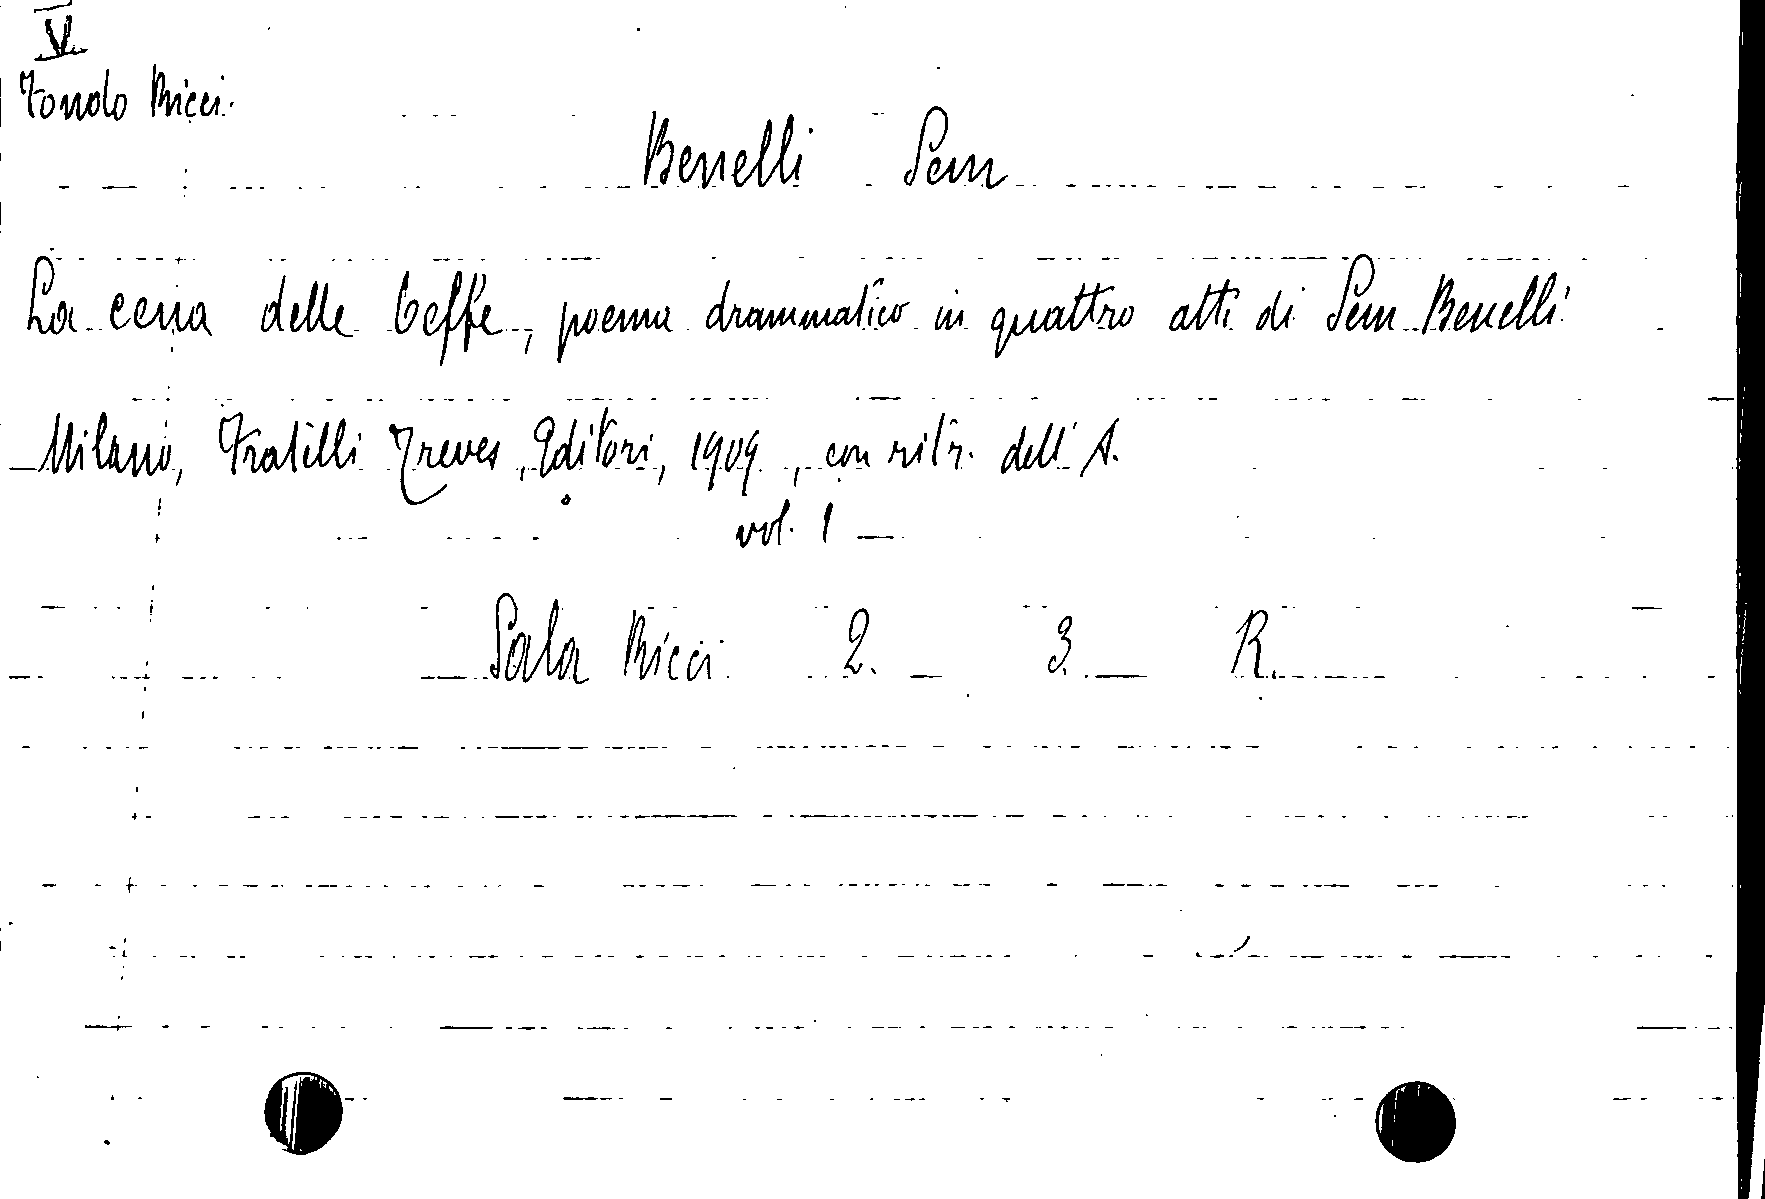 V
Fondo Ricci.
Benelli Sem
La cena delle beffe, poema drammatico in quattro atti di Sem Benelli
Milano, Fratelli Treves, Editori, 1909, con ritr. dell'A.
vol. 1
Sala Ricci 2. 3. R.